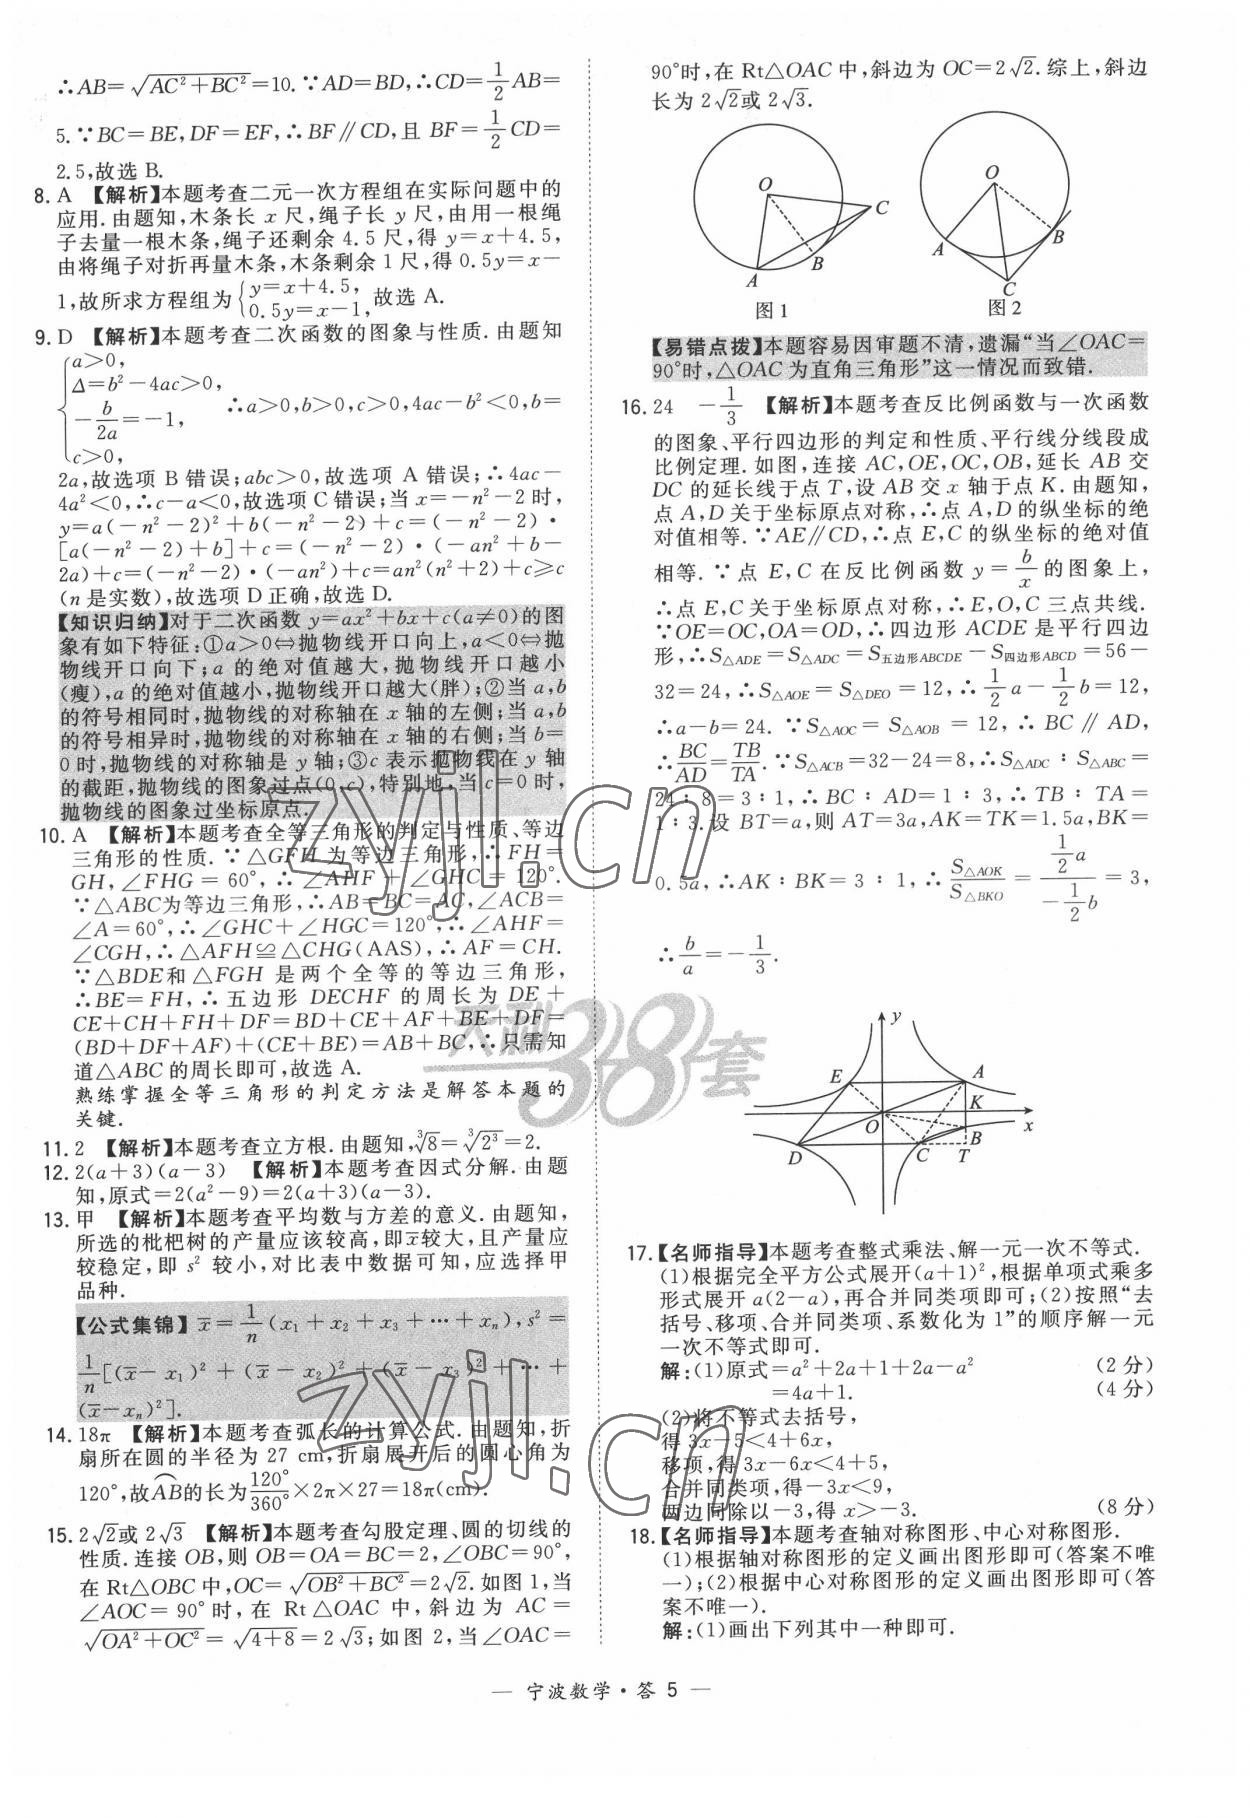 ∴AB=√(AC²+BC²)=10.∵AD=BD,∴CD=1/2AB=
5.∵BC=BE,DF=EF,∴BF∥CD,且 BF=1/2CD=
2.5,故选 B.
8. A 【解析】本题考查二元一次方程组在实际问题中的
应用.由题知,木条长 x 尺,绳子长 y 尺,由用一根绳
子去量一根木条,绳子还剩余 4.5 尺,得 y=x+4.5,
由将绳子对折再量木条,木条剩余 1 尺,得 0.5y=x-
1,故所求方程组为{y=x+4.5, 0.5y=x-1,故选 A.
9. D 【解析】本题考查二次函数的图象与性质.由题知
{a>0,
Δ=b²-4ac>0,
-b/2a=-1, ∴a>0,b>0,c>0,4ac-b²<0,b=
c>0,
2a,故选项 B 错误;abc>0,故选项 A 错误;∴4ac-
4a²<0,∴c-a<0,故选项 C 错误;当 x=-n²-2 时,
y=a(-n²-2)²+b(-n²-2)+c=(-n²-2)·
[a(-n²-2)+b]+c=(-n²-2)·(-an²+b-
2a)+c=(-n²-2)·(-an²)+c=an²(n²+2)+c≥c
(n 是实数),故选项 D 正确,故选 D.
【知识归纳】对于二次函数 y=ax²+bx+c(a≠0)的图
象有如下特征:①a>0⇔抛物线开口向上,a<0⇔抛
物线开口向下;a 的绝对值越大,抛物线开口越小
(瘦),a 的绝对值越小,抛物线开口越大(胖);②当 a,b
的符号相同时,抛物线的对称轴在 x 轴的左侧;当 a,b
的符号相异时,抛物线的对称轴在 x 轴的右侧;当 b=
0 时,抛物线的对称轴是 y 轴;③c 表示抛物线在 y 轴
的截距,抛物线的图象过点(0,c),特别地,当 c=0 时,
抛物线的图象过坐标原点.
10. A 【解析】本题考查全等三角形的判定与性质、等边
三角形的性质.∵△GFH 为等边三角形,∴FH=
GH,∠FHG=60°,∴∠AHF+∠GHC=120°.
∵△ABC为等边三角形,∴AB=BC=AC,∠ACB=
∠A=60°,∴∠GHC+∠HGC=120°,∴∠AHF=
∠CGH,∴△AFH≌△CHG(AAS),∴AF=CH.
∵△BDE和△FGH 是两个全等的等边三角形,
∴BE=FH,∴五边形 DECHF 的周长为 DE+
CE+CH+FH+DF=BD+CE+AF+BE+DF=
(BD+DF+AF)+(CE+BE)=AB+BC,∴只需知
道△ABC的周长即可,故选 A.
熟练掌握全等三角形的判定方法是解答本题的
关键.
11. 2 【解析】本题考查立方根.由题知,∛8=∛2³=2.
12. 2(a+3)(a-3) 【解析】本题考查因式分解.由题
知,原式=2(a²-9)=2(a+3)(a-3).
13. 甲 【解析】本题考查平均数与方差的意义.由题知,
所选的枇杷树的产量应该较高,即x̄较大,且产量应
较稳定,即 s² 较小,对比表中数据可知,应选择甲
品种.
【公式集锦】x̄=1/n(x₁+x₂+x₃+···+xₙ),s²=
1/n[(x̄-x₁)²+(x̄-x₂)²+(x̄-x₃)²+···+
(x̄-xₙ)²].
14. 18π 【解析】本题考查弧长的计算公式.由题知,折
扇所在圆的半径为 27 cm,折扇展开后的圆心角为
120°,故A͡B的长为120°/360°×2π×27=18π(cm).
15. 2√2或 2√3 【解析】本题考查勾股定理、圆的切线的
性质.连接 OB,则 OB=OA=BC=2,∠OBC=90°,
在 Rt△OBC中,OC=√(OB²+BC²)=2√2.如图 1,当
∠AOC=90°时,在 Rt△OAC 中,斜边为 AC=
√(OA²+OC²)=√(4+8)=2√3;如图 2,当∠OAC=
90°时,在 Rt△OAC 中,斜边为 OC=2√2.综上,斜边
长为 2√2或 2√3.
O
C
B
A
图 1
O
A
B
C
图 2
【易错点拨】本题容易因审题不清,遗漏“当∠OAC=
90°时,△OAC 为直角三角形”这一情况而致错.
16. 24 -1/3 【解析】本题考查反比例函数与一次函数
的图象、平行四边形的判定和性质、平行线分线段成
比例定理.如图,连接 AC,OE,OC,OB,延长 AB 交
DC 的延长线于点 T,设 AB 交 x 轴于点 K.由题知,
点 A,D 关于坐标原点对称,∴点 A,D 的纵坐标的绝
对值相等.∵AE∥CD,∴点 E,C 的纵坐标的绝对值
相等.∵点 E,C 在反比例函数 y=b/x 的图象上,
∴点 E,C 关于坐标原点对称,∴E,O,C 三点共线.
∵OE=OC,OA=OD,∴四边形 ACDE 是平行四边
形,∴S△ADE=S△ADC=S五边形ABCDE-S四边形ABCD=56-
32=24,∴S△AOE=S△DEO=12,∴1/2a-1/2b=12,
∴a-b=24.∵S△AOC=S△AOB=12,∴BC∥AD,
∴BC/AD=TB/TA.∵S△ACB=32-24=8,∴S△ADC∶S△ABC=
24∶8=3∶1,∴BC∶AD=1∶3,∴TB∶TA=
1∶3.设 BT=a,则 AT=3a,AK=TK=1.5a,BK=
0.5a,∴AK∶BK=3∶1,∴S△AOK/S△BKO=(1/2a)/(-1/2b)=3,
∴b/a=-1/3.
y
E
A
K
O
x
B
D
C
T
17.【名师指导】本题考查整式乘法、解一元一次不等式.
(1)根据完全平方公式展开(a+1)²,根据单项式乘多
形式展开 a(2-a),再合并同类项即可;(2)按照“去
括号、移项、合并同类项、系数化为 1”的顺序解一元
一次不等式即可.
解:(1)原式=a²+2a+1+2a-a² (2 分)
=4a+1. (4 分)
(2)将不等式去括号,
得 3x-5<4+6x,
移项,得 3x-6x<4+5,
合并同类项,得-3x<9,
两边同除以-3,得 x>-3. (8 分)
18.【名师指导】本题考查轴对称图形、中心对称图形.
(1)根据轴对称图形的定义画出图形即可(答案不唯
一);(2)根据中心对称图形的定义画出图形即可(答
案不唯一).
解:(1)画出下列其中一种即可.
zyjl.cn
天利38套
zyjl.cn
— 宁波数学·答 5 —